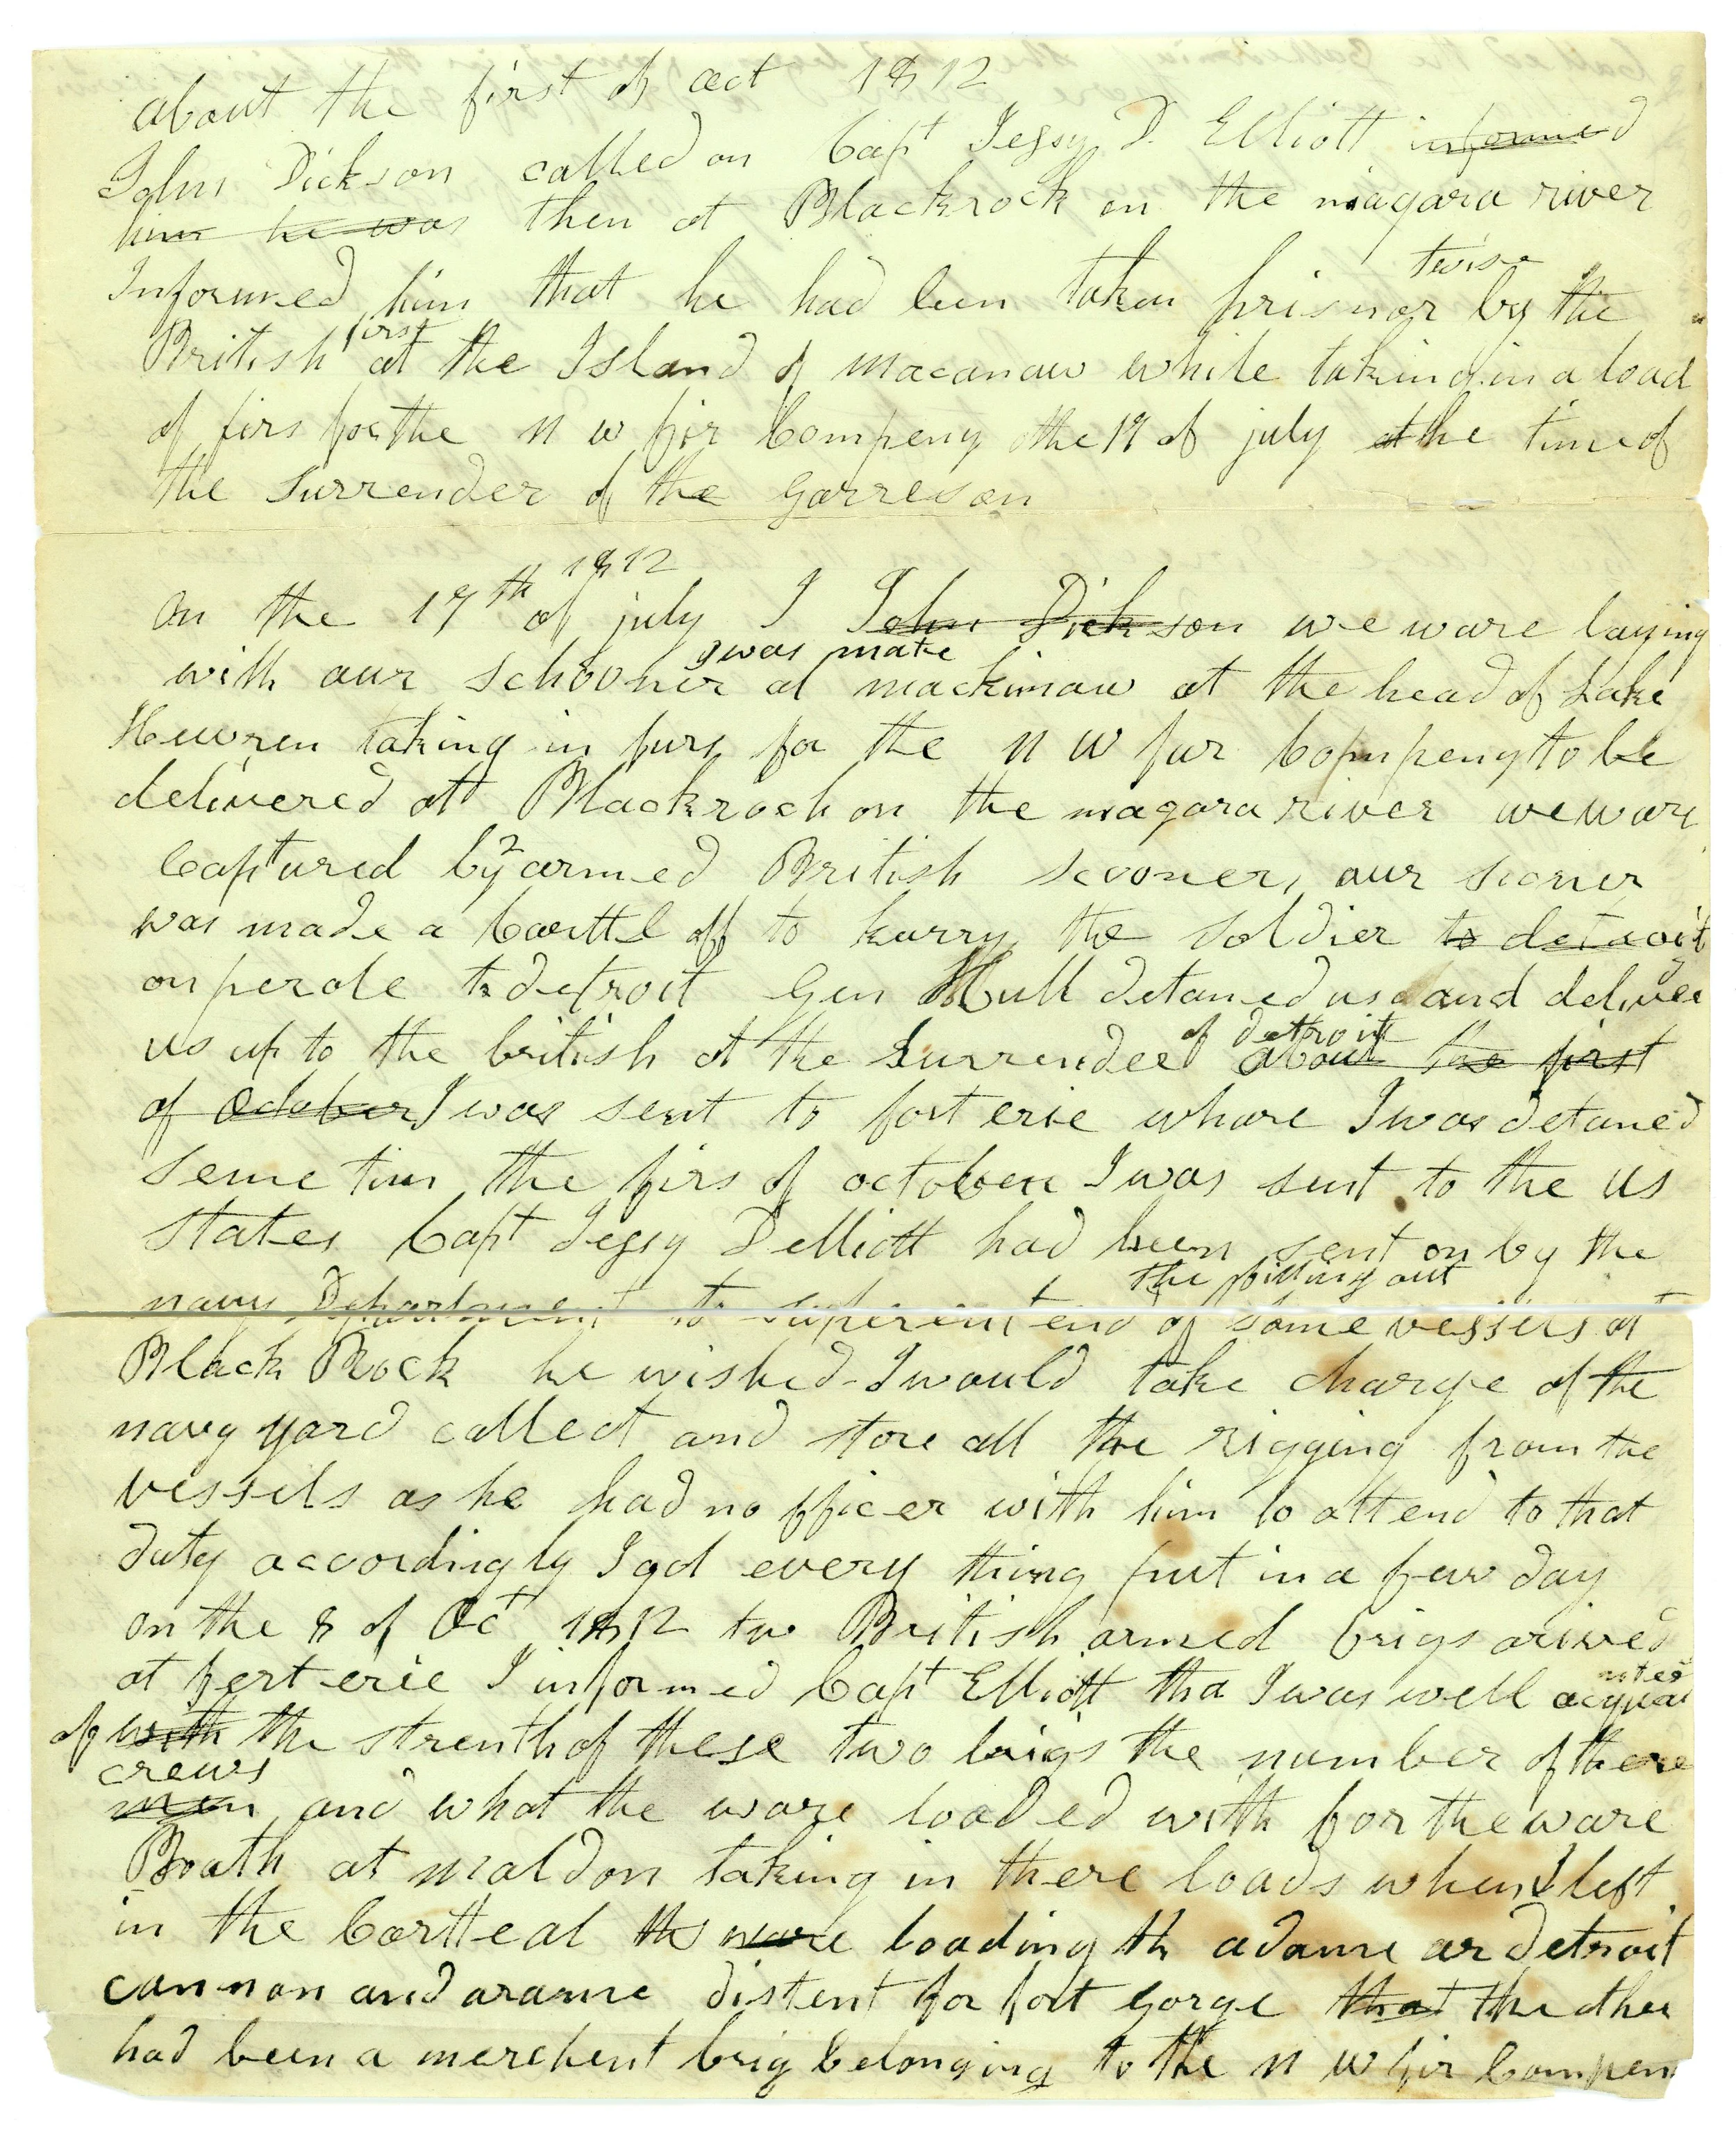 about the first of oct 1812
John Dickson called on Capt Jessy D. Elliott informed
him he was then at Blackrock on the niagara river
twise
Informed him that he had been taken prisnor by the
first
British at the Island of macanaw while taking in a load
of firs for the n w fir Compeny the 17 of july at the time of
the Surrender of the garreson
1812
on the 17th of july I John Dickson we ware laying
I was mate
with our schooner at mackinaw at the head of Lake
Heuwren taking in furs for the n w fur Compeny to be
delivered att Blackrock on the niagara river we ware
2
Captured by armed British scooners our scorner
was made a Carttel off to karry the soldier to detroit
on perole to detroit Gen Hull detaned us and deliver
of detroit
us up to the british at the surrender about the first
of October I was sent to fort erie whare I was detaned
some tim the firs of october I was sent to the us
states Capt Jessy D elliott had been sent on by the
the fitting out
navy Department to superentend of some vessels at
Black Rock he wished I would take charge of the
navy yard collect and store all the rigging from the
vessels as he had no officer with him to attend to that
duty accordingly I got every thing put in a few day
on the 8 of Oct 1812 tw British armed brigs arived
at fort erie I informed Capt Elliott tha I was well acquai
nted
of with the strenth of these two brigs the number of there
crews
men and what the ware loaded with for the ware
Boath at maldon taking in there loads when I left
in the Cartteal the ware loading th adams or detroit
cannon and arams distent for fort gorge that the other
had been a merchent brig belonging to the n w fir Compen